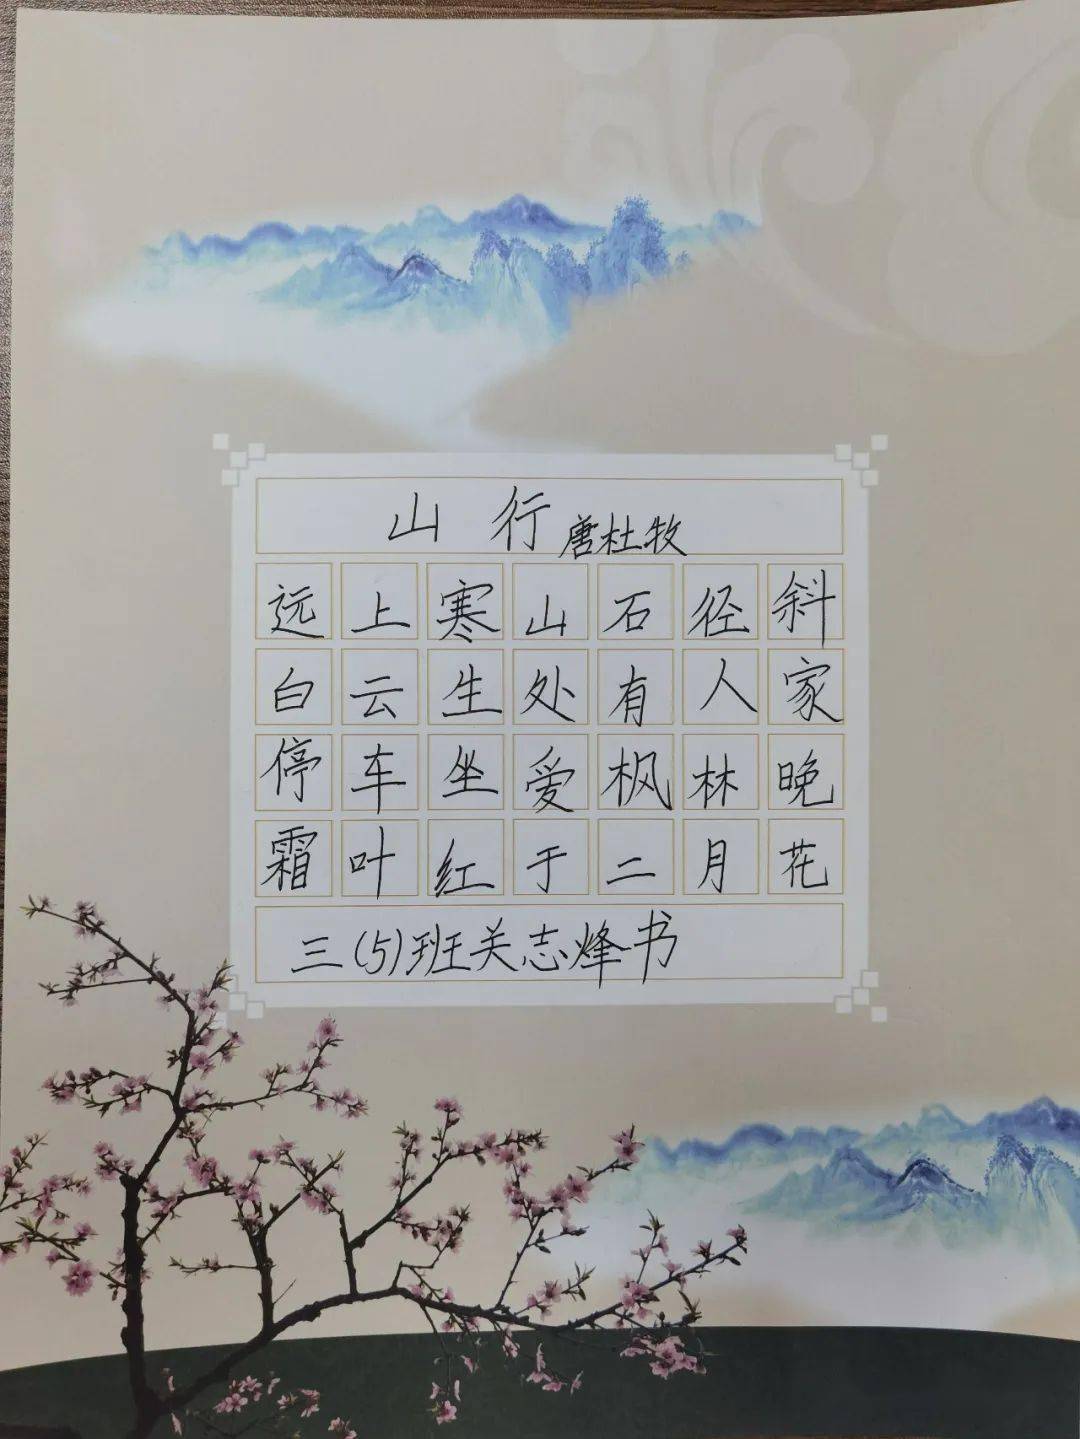 山行 唐杜牧
远上寒山石径斜
白云生处有人家
停车坐爱枫林晚
霜叶红于二月花
三(5)班关志烽书